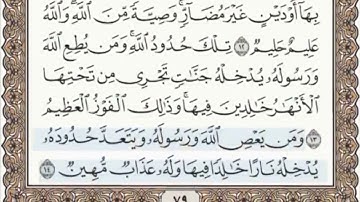 بِهَآ أَوْ دَيْنٍ غَيْرَ مُضَآرٍّ ۚ وَصِيَّةً مِّنَ ٱللَّهِ ۗ وَٱللَّهُ
عَلِيمٌ حَلِيمٌ ١٢ تِلْكَ حُدُودُ ٱللَّهِ ۚ وَمَن يُطِعِ ٱللَّهَ
وَرَسُولَهُۥ يُدْخِلْهُ جَنَّـٰتٍ تَجْرِى مِن تَحْتِهَا
ٱلْأَنْهَـٰرُ خَـٰلِدِينَ فِيهَا ۚ وَذَٰلِكَ ٱلْفَوْزُ ٱلْعَظِيمُ
١٣ وَمَن يَعْصِ ٱللَّهَ وَرَسُولَهُۥ وَيَتَعَدَّ حُدُودَهُۥ
يُدْخِلْهُ نَارًا خَـٰلِدًا فِيهَا وَلَهُۥ عَذَابٌ مُّهِينٌ ١٤
٧٩